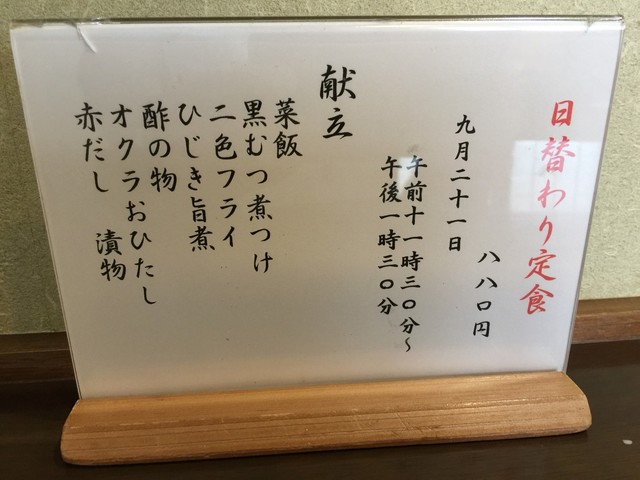 日替わり定食
八八〇円
九月二十一日
午前十一時三〇分〜
午後一時三〇分
献立
菜飯
黒むつ煮つけ
二色フライ
ひじき旨煮
酢の物
オクラおひたし
赤だし　漬物